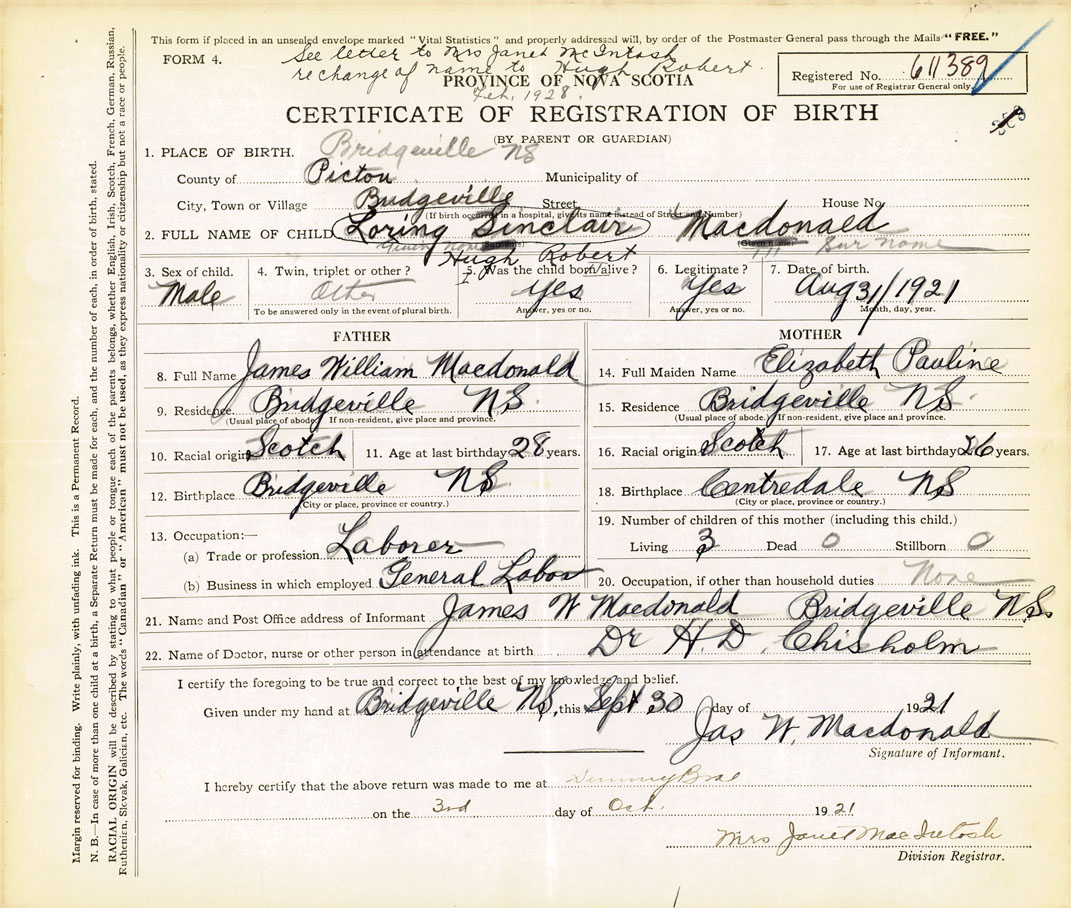 This form if placed in an unsealed envelope marked "Vital Statistics" and properly addressed will, by order of the Postmaster General pass through the Mails "FREE."
FORM 4.
See letter to Mrs Janet McIntosh
re change of name to Hugh Robert.
Feb. 1928.
PROVINCE OF NOVA SCOTIA
Registered No. 611389
For use of Registrar General only.
CERTIFICATE OF REGISTRATION OF BIRTH
(BY PARENT OR GUARDIAN)
1. PLACE OF BIRTH. Bridgeville NS
County of Pictou Municipality of
City, Town or Village Bridgeville Street House No.
(If birth occurred in a hospital, give its name instead of Street and Number)
2. FULL NAME OF CHILD Loring Sinclair Macdonald
Given name (Surname) (Given name) Sur name
Hugh Robert
3. Sex of child. Male
4. Twin, triplet or other? Other
To be answered only in the event of plural birth.
5. Was the child born alive? Yes
Answer, yes or no.
6. Legitimate? Yes
Answer, yes or no.
7. Date of birth. Aug 31/1921
Month, day, year.
FATHER
8. Full Name James William Macdonald
9. Residence Bridgeville NS.
(Usual place of abode. If non-resident, give place and province.
10. Racial origin Scotch 11. Age at last birthday 28 years.
12. Birthplace Bridgeville NS
(City or place, province or country.)
13. Occupation:—
(a) Trade or profession Laborer
(b) Business in which employed General Labor
MOTHER
14. Full Maiden Name Elizabeth Pauline
15. Residence Bridgeville NS.
(Usual place of abode.) If non-resident, give place and province.
16. Racial origin Scotch 17. Age at last birthday 26 years.
18. Birthplace Centredale NS
(City or place, province or country.)
19. Number of children of this mother (including this child.)
Living 3 Dead 0 Stillborn 0
20. Occupation, if other than household duties None
21. Name and Post Office address of Informant James W Macdonald Bridgeville N.S.
22. Name of Doctor, nurse or other person in attendance at birth Dr H. D. Chisholm
I certify the foregoing to be true and correct to the best of my knowledge and belief.
Given under my hand at Bridgeville NS, this Sept 30 day of 1921
Jas W. Macdonald
Signature of Informant.
I hereby certify that the above return was made to me at
on the 3rd day of Oct. 1921
Mrs Janet MacIntosh
Division Registrar.
Margin reserved for binding. Write plainly, with unfading ink. This is a Permanent Record.
N. B.—In case of more than one child at a birth, a Separate Return must be made for each, and the number of each, in order of birth, stated.
RACIAL ORIGIN will be described by stating to what people or tongue each of the parents belongs, whether English, Irish, Scotch, French, German, Russian,
Ruthenian, Slovak, Galician, etc. The words "Canadian" or "American" must not be used, as they express nationality or citizenship but not a race or people.